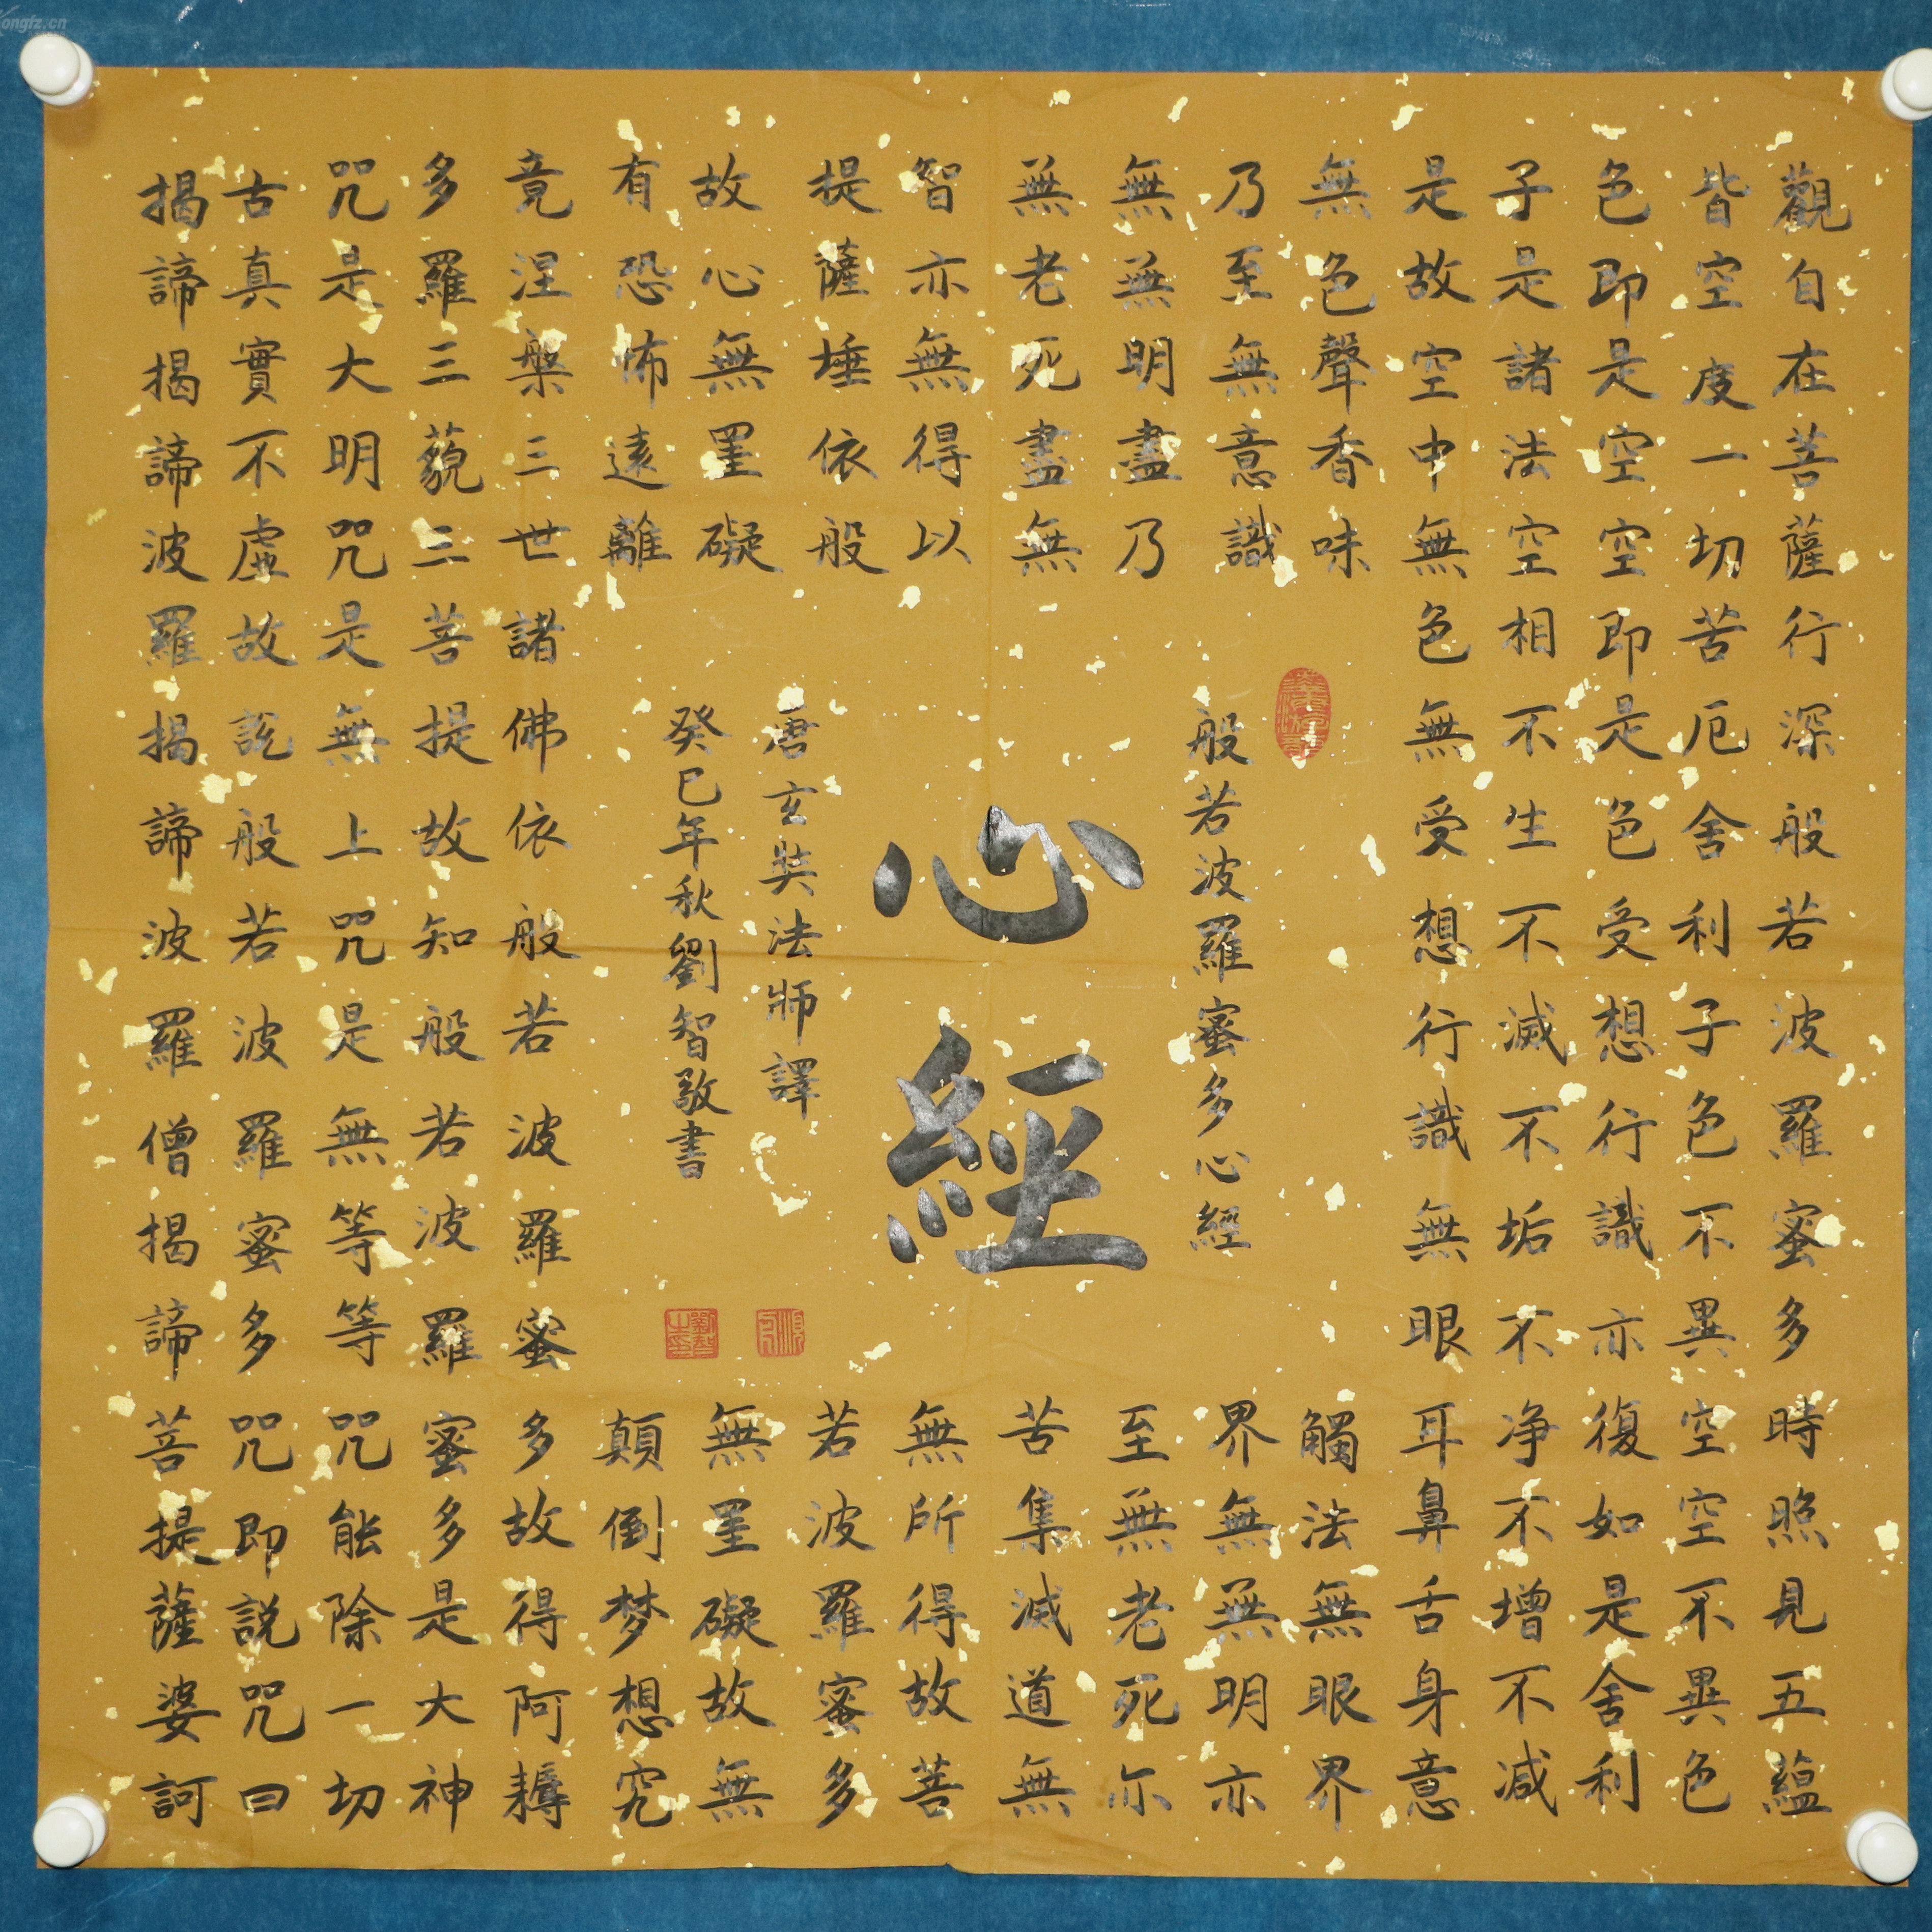 觀自在菩薩行深般若波羅蜜多時照見五蘊
皆空度一切苦厄舍利子色不異空空不異色
色即是空空即是色受想行識亦復如是舍利
子是諸法空相不生不滅不垢不净不增不减
是故空中無色無受想行識無眼耳鼻舌身意
無色聲香味觸法無眼界
乃至無意識界無無明亦
無無明盡乃至無老死亦
無老死盡無苦集滅道無
智亦無得以無所得故菩
提薩埵依般若波羅蜜多
故心無罣礙無罣礙故無
有恐怖遠離顛倒梦想究
竟涅槃三世諸佛依般若波羅蜜多故得阿耨
多羅三藐三菩提故知般若波羅蜜多是大神
咒是大明咒是無上咒是無等等咒能除一切
古真實不虛故說般若波羅蜜多咒即説咒曰
揭諦揭諦波羅揭諦波羅僧揭諦菩提薩婆訶
般若波羅蜜多心經
心經
唐玄奘法師譯
癸巳年秋劉智敬書